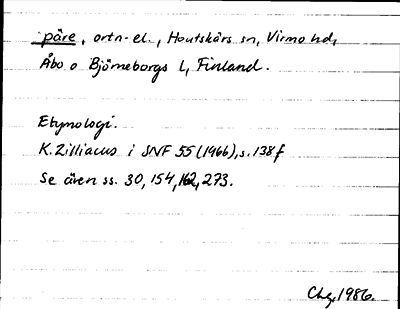 påre, ortn-el., Houtskärs sn, Virmo hd,
Åbo o Björneborgs l, Finland.
Etymologi.
K. Zilliacus i SNF 55 (1966), s. 138f
Se även ss. 30, 154, 162, 273.
Chg. 1986.